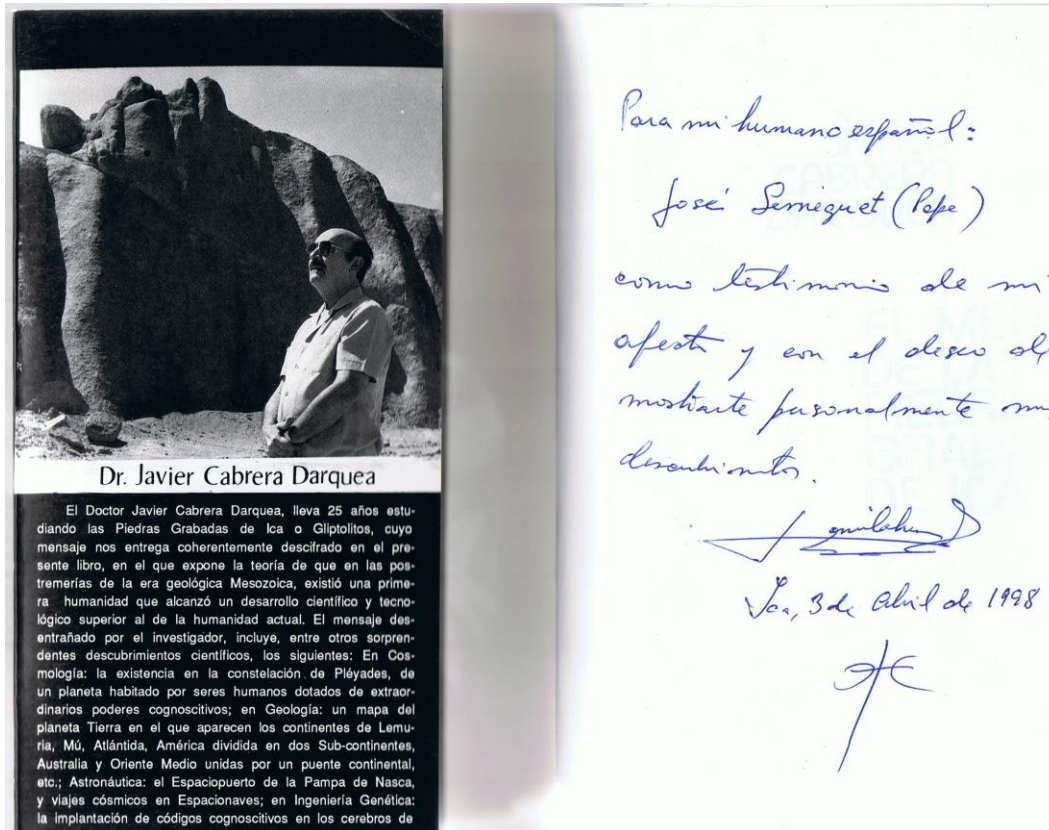 Dr. Javier Cabrera Darquea
El Doctor Javier Cabrera Darquea, lleva 25 años estu-
diando las Piedras Grabadas de Ica o Gliptolitos, cuyo
mensaje nos entrega coherentemente descifrado en el pre-
sente libro, en el que expone la teoría de que en las pos-
tremerías de la era geológica Mesozoica, existió una prime-
ra humanidad que alcanzó un desarrollo científico y tecno-
lógico superior al de la humanidad actual. El mensaje des-
entrañado por el investigador, incluye, entre otros sorpren-
dentes descubrimientos científicos, los siguientes: En Cos-
mología: la existencia en la constelación de Pléyades, de
un planeta habitado por seres humanos dotados de extraor-
dinarios poderes cognoscitivos; en Geología: un mapa del
planeta Tierra en el que aparecen los continentes de Lemu-
ria, Mú, Atlántida, América dividida en dos Sub-continentes,
Australia y Oriente Medio unidas por un puente continental,
etc.; Astronáutica: el Espaciopuerto de la Pampa de Nasca,
y viajes cósmicos en Espacionaves; en Ingeniería Genética:
la implantación de códigos cognoscitivos en los cerebros de
Para mi humano español:
José (Pepe)
como testimonio de mi
afecto y con el deseo de
mostrarte personalmente
descubrimientos.
Ica, 3 de Abril de 1998